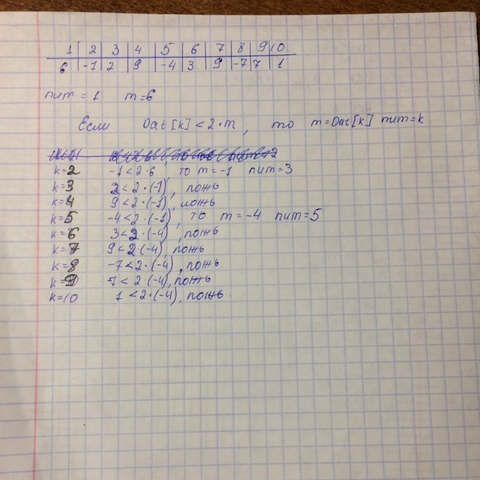 1 2 3 4 5 6 7 8 9 10
6 -1 2 9 -4 3 9 -7 7 1
num = 1 m=6
Если Dat[k] < 2·m, то m=Dat[k] num=k
k=2 -1<2·6, то m=-1 num=3
k=3 2<2·(-1), ложь
k=4 9<2·(-1), ложь
k=5 -4<2·(-1), то m=-4 num=5
k=6 3<2·(-4), ложь
k=7 9<2·(-4), ложь
k=8 -7<2·(-4), ложь
k=9 7<2·(-4), ложь
k=10 1<2·(-4), ложь